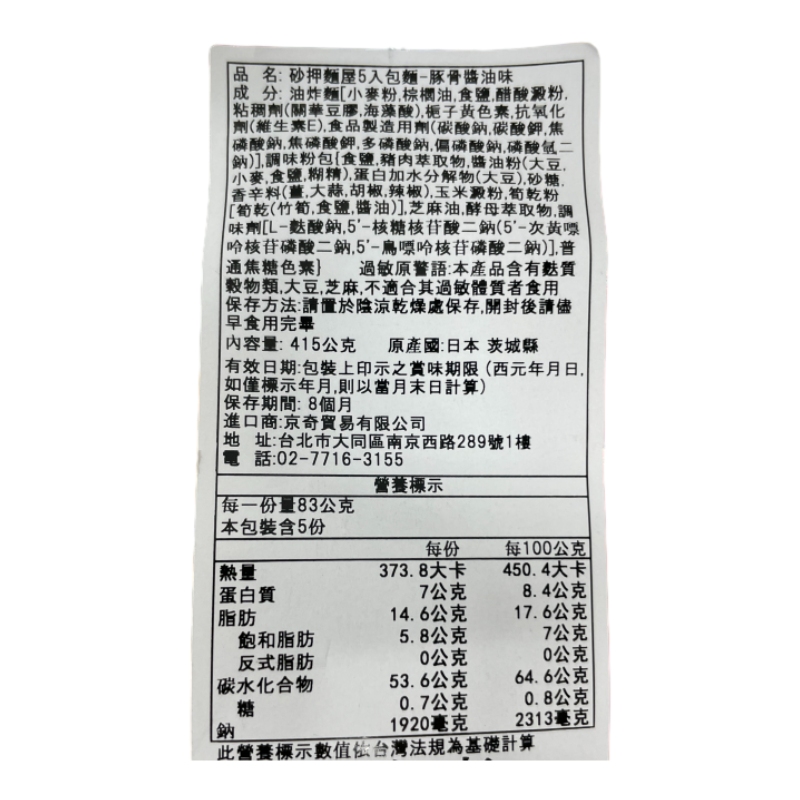 品 名: 砂押麵屋5入包麵-豚骨醬油味
成 分: 油炸麵[小麥粉,棕櫚油,食鹽,醋酸澱粉,
粘稠劑(關華豆膠,海藻酸),梔子黃色素,抗氧化
劑(維生素E),食品製造用劑(碳酸鈉,碳酸鉀,焦
磷酸鈉,焦磷酸鉀,多磷酸鈉,偏磷酸鈉,磷酸氫二
鈉)],調味粉包{食鹽,豬肉萃取物,醬油粉(大豆,
小麥,食鹽,糊精),蛋白加水分解物(大豆),砂糖,
香辛料(薑,大蒜,胡椒,辣椒),玉米澱粉,筍乾粉
[筍乾(竹筍,食鹽,醬油)],芝麻油,酵母萃取物,調
味劑[L-麩酸鈉,5'-核糖核苷酸二鈉(5'-次黃嘌
呤核苷磷酸二鈉,5'-鳥嘌呤核苷磷酸二鈉)],普
通焦糖色素} 過敏原警語:本產品含有麩質
穀物類,大豆,芝麻,不適合其過敏體質者食用
保存方法:請置於陰涼乾燥處保存,開封後請儘
早食用完畢
內容量: 415公克 原產國:日本 茨城縣
有效日期:包裝上印示之賞味期限 (西元年月日,
如僅標示年月,則以當月末日計算)
保存期間: 8個月
進口商:京奇貿易有限公司
地 址:台北市大同區南京西路289號1樓
電 話:02-7716-3155
營養標示
每一份量83公克
本包裝含5份
每份 每100公克
熱量 373.8大卡 450.4大卡
蛋白質 7公克 8.4公克
脂肪 14.6公克 17.6公克
飽和脂肪 5.8公克 7公克
反式脂肪 0公克 0公克
碳水化合物 53.6公克 64.6公克
糖 0.7公克 0.8公克
鈉 1920毫克 2313毫克
此營養標示數值依台灣法規為基礎計算